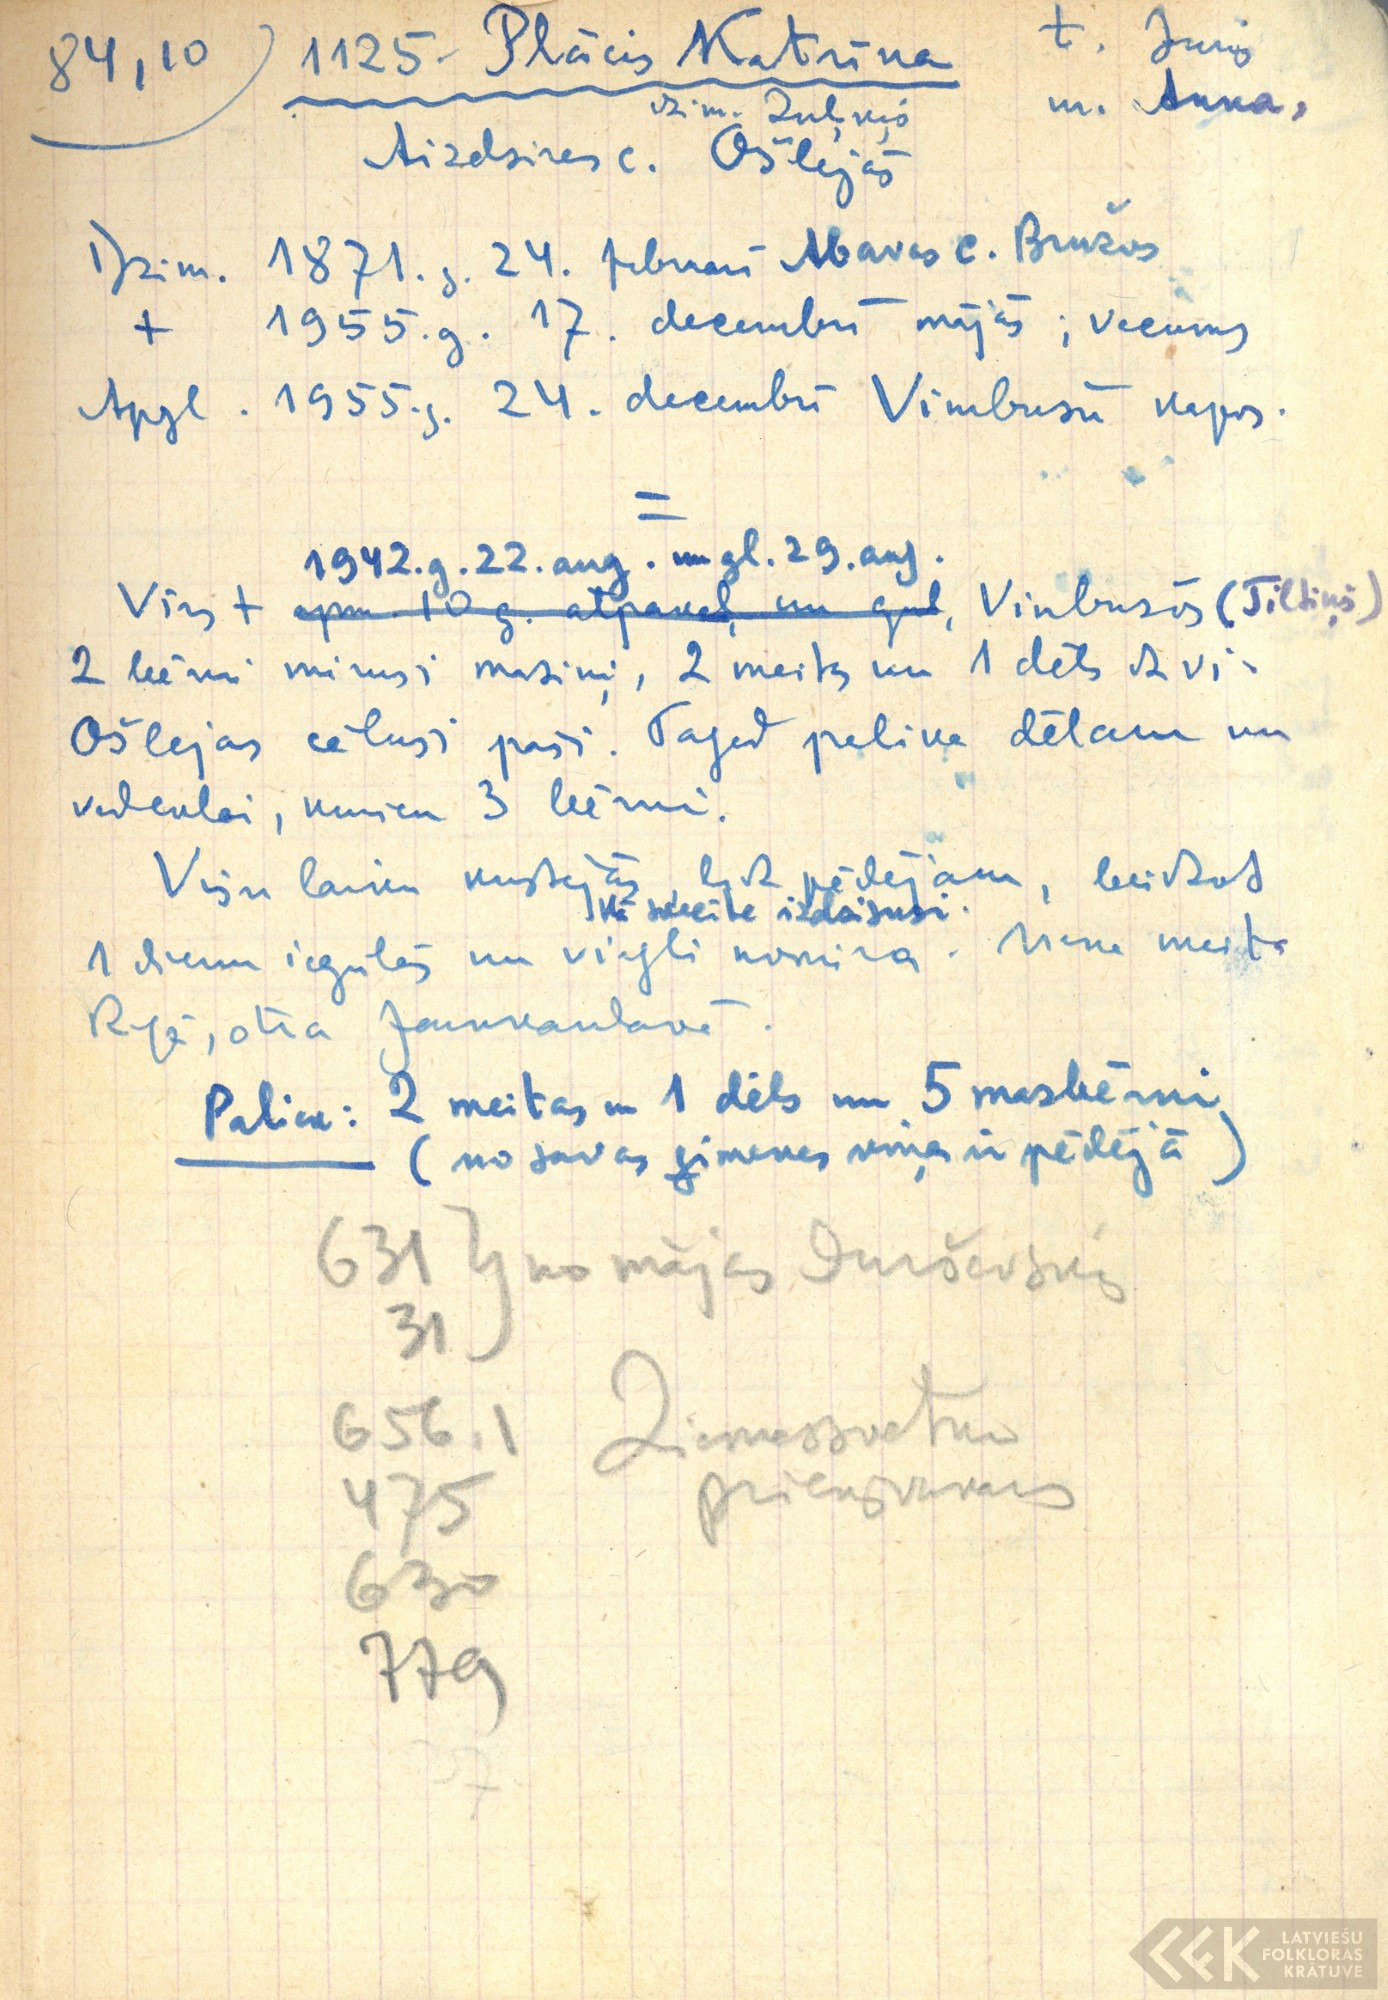 84,10) 1125. Plācis Katrīna t. Juris
dzim. Zuļķis m. Anna,
Aizdzires c. Ošlejās
Dzim. 1871.g. 24. februārī Abavas c. Bružos
+ 1955.g. 17. decembrī mājās; vecums
Apgl. 1955.g. 24. decembrī Vimbusū kapos.
=
1942.g.22.aug. un gl. 29.aug.
Vīrs + apm. 10 g. atpakaļ, un gul, Vimbusōs (Tiltiņš)
2 bērni miruši maziņi, 2 meitas un 1 dēls dzīvi.
Ošlejas cēluši paši. Tagad palika dēlam un
vedeklai, kuriem 3 bērni.
Visu laiku kustējās līdz pēdējam, beidzot
kā svecīte izdzisusi.
1 dienu iegulās un viegli nomira. Viena meita
Rīgā, otra Jaunkandavā.
Paliek: 2 meitas un 1 dēls un 5 mazbērni
(no savas ģimenes viņa ir pēdējā)
631 } no mājas
31
656.1 Ziemassvetku
475 priekšvakars
630
779
LATVIEŠU
FOLKLORAS
KRĀTUVE